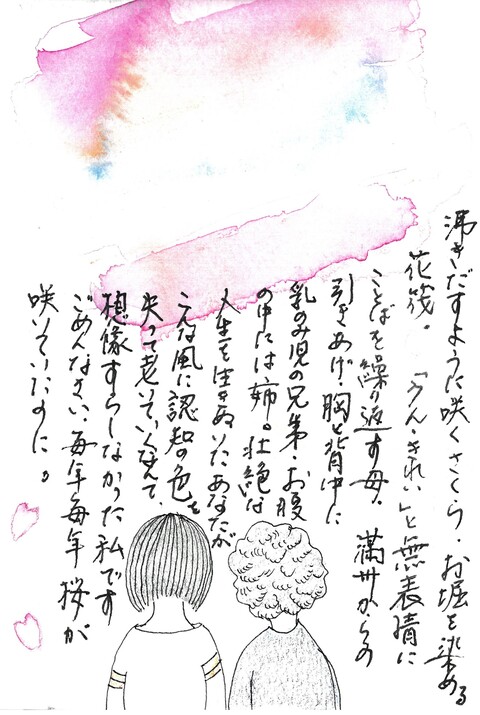 沸きだすように咲くさくら。お堀を染める
花筏。「うん、きれい」と無表情に
ことばを繰り返す母。満州からの
引きあげ、胸と背中に
乳のみ児の兄弟、お腹
の中には姉。壮絶な
人生を生きぬいたあなたが
こんな風に認知の色を
失って老いていくなんて、
想像すらしなかった私です
ごめんなさい、毎年毎年桜が
咲いていたのに。